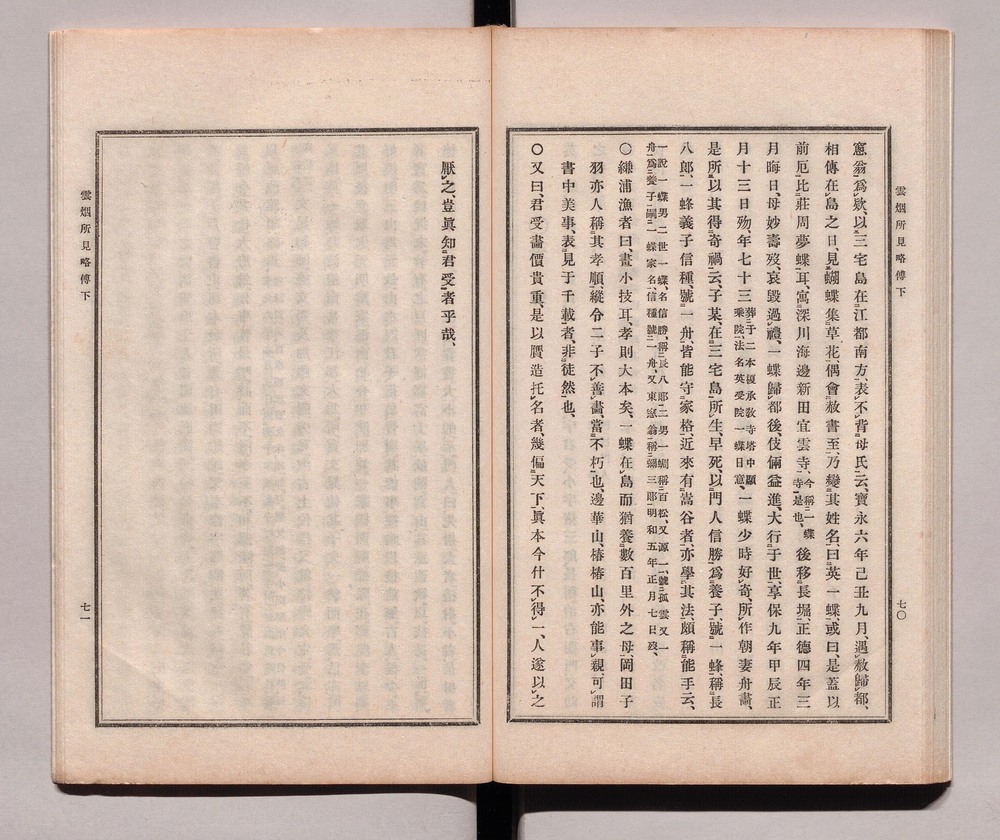 雲烟所見略傳下
七〇
窻翁爲欵、以三宅島在江都南方、表不背母氏云、寶永六年己丑九月、遇赦歸都、
相傳在島之日、見蝴蝶集草花、偶會赦書至、乃變其姓名、曰英一蝶、或曰、是蓋以
前厄比莊周夢蝶耳、寓深川海邊新田宜雲寺、今稱一蝶寺是也、後移長堀、正德四年三
月晦日、母妙壽歿、哀毀過禮、一蝶歸都後、伎倆益進、大行于世、享保九年甲辰正
月十三日歿、年七十三、葬于二本榎承敎寺塔中顯乘院、法名英受院一蝶日意、一蝶少時好奇、所作朝妻舟畵、
是所以其得奇禍云、子某、在三宅島所生、早死、以門人信勝爲養子、號一蜂、稱長
八郎、一蜂義子信種、號一舟、皆能守家格、近來有嵩谷者、亦學其法、頗稱能手云、
一說一蝶男二世一蝶、名信勝、稱長八郎、二男一蜩、稱百松、又源一、號孤雲、又一
舟爲養子嗣一蝶家、名信種、號一舟、又東窻翁、稱彌三郎、明和五年正月七日歿、
〇縑浦漁者曰、畫小技耳、孝則大本矣、一蝶在島而猶養數百里外之母、岡田子
羽亦人稱其孝順、縱令二子不善畵、當不朽也、邊華山、椿椿山亦能事親、可謂
書中美事、表見于千載者、非徒然也、
〇又曰、君受畵價貴重、是以贋造托名者、幾偏天下、眞本今什不得一、人遂以之
厭之、豈眞知君受者乎哉、
雲烟所見略傳下
七一